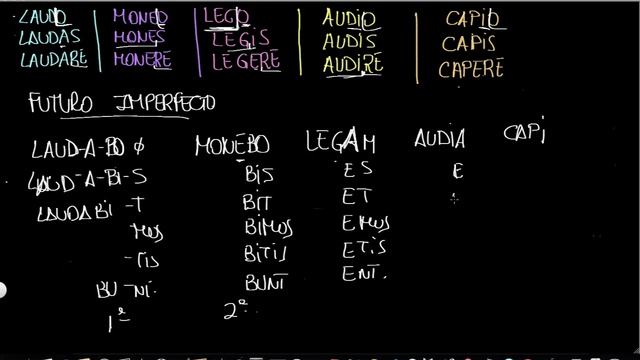 LAUDO MONEO LEGO AUDIO CAPIO
LAUDAS MONES LEGIS AUDIS CAPIS
LAUDARE MONERE LEGERE AUDIRE CAPERE
FUTURO IMPERFECTO
LAUD-A-BO Ø MONEBO LEGAM AUDIA CAPI
LAUD-A-Bi-S BiS ES E
LAUDABi-T BiT ET
MUS BiMUS EMUS
-TiS BiTiS ETiS
BU-NT. BUNT ENT.
1ª 2ª